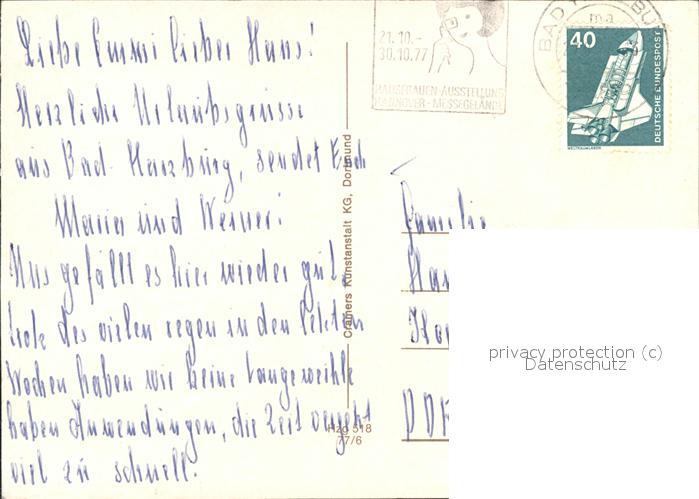 Liebe Emmi lieber Hans!
Herzliche Urlaubsgrüsse
aus Bad-Harzburg, sendet Euch
Maria und Werner!
Uns gefällt es hier wieder gut
trotz des vielen regen in den letzten
Wochen haben wir keine Langeweihle
haben Anwendungen, die Zeit vergeht
viel zu schnell.
Cramers Kunstanstalt KG, Dortmund
Hzg 518
77/6
21.10.-
30.10.77
HAUSFRAUEN-AUSSTELLUNG
HANNOVER-MESSEGELÄNDE
BAD
ma
40
DEUTSCHE BUNDESPOST
WELTRAUMLABOR
Familie
Ha
DDR
privacy protection (c)
Datenschutz